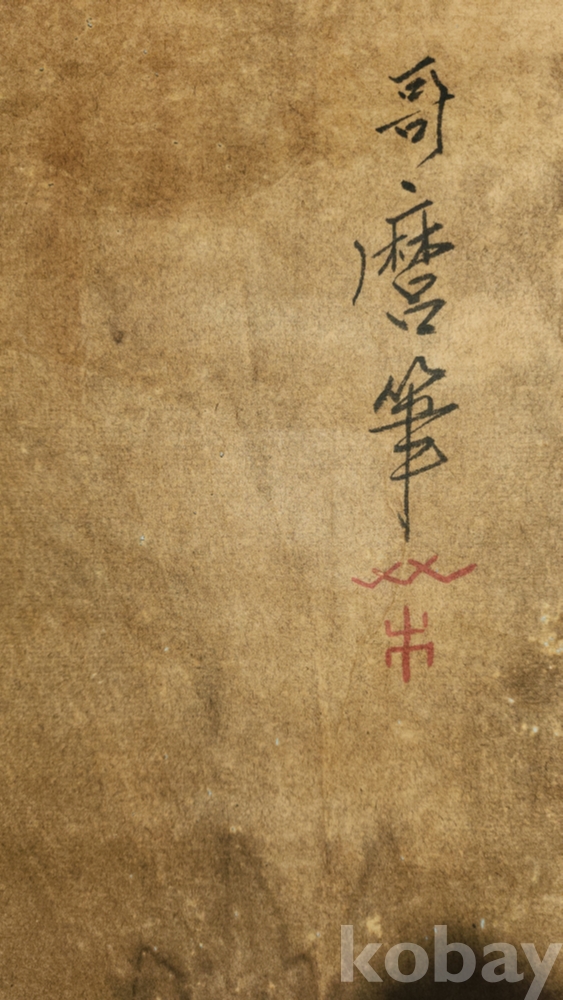 哥麿筆
kobay